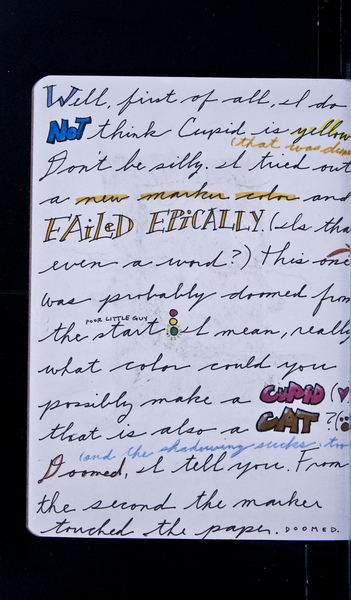 Well, first of all, I do
NOT think Cupid is yellow
(that was dumb
Don't be silly. I tried out
a new marker color and
FAiLED EPICALLY. (Is tha
even a word?) This one
was probably doomed from
POOR LITTLE GUY
the start. I mean, really
what color could you
possibly make a CUPID (
that is also a CAT ?(
(and the shadowing sucks, too
Doomed, I tell you. From
the second the marker
touched the paper. DOOMED.